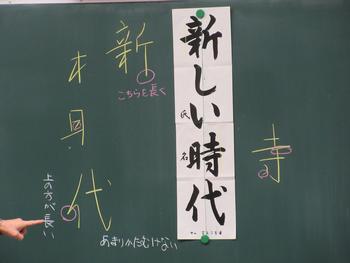 新しい時代
氏
名
新
こちらを長く
木
目
代
上の方が長い
あまりかたむけない
寺